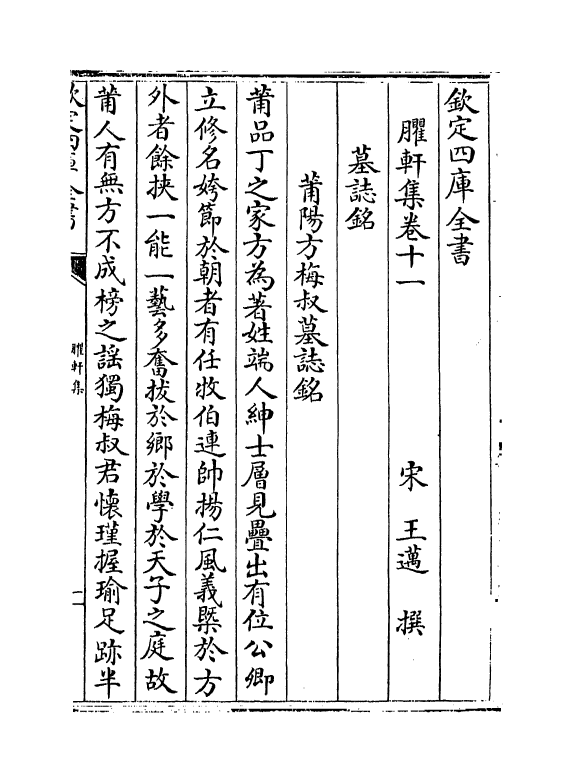 欽定四庫全書
臞軒集卷十一
宋 王邁 撰
墓誌銘
莆陽方梅叔墓誌銘
莆品丁之家方為著姓端人紳士層見疊出有位公卿
立修名姱節於朝者有任牧伯連帥揚仁風義槩於方
外者餘挾一能一藝多奮拔於鄉於學於天子之庭故
莆人有無方不成榜之謡獨梅叔君懷瑾握瑜足跡半
欽定四庫全書
臞軒集
一